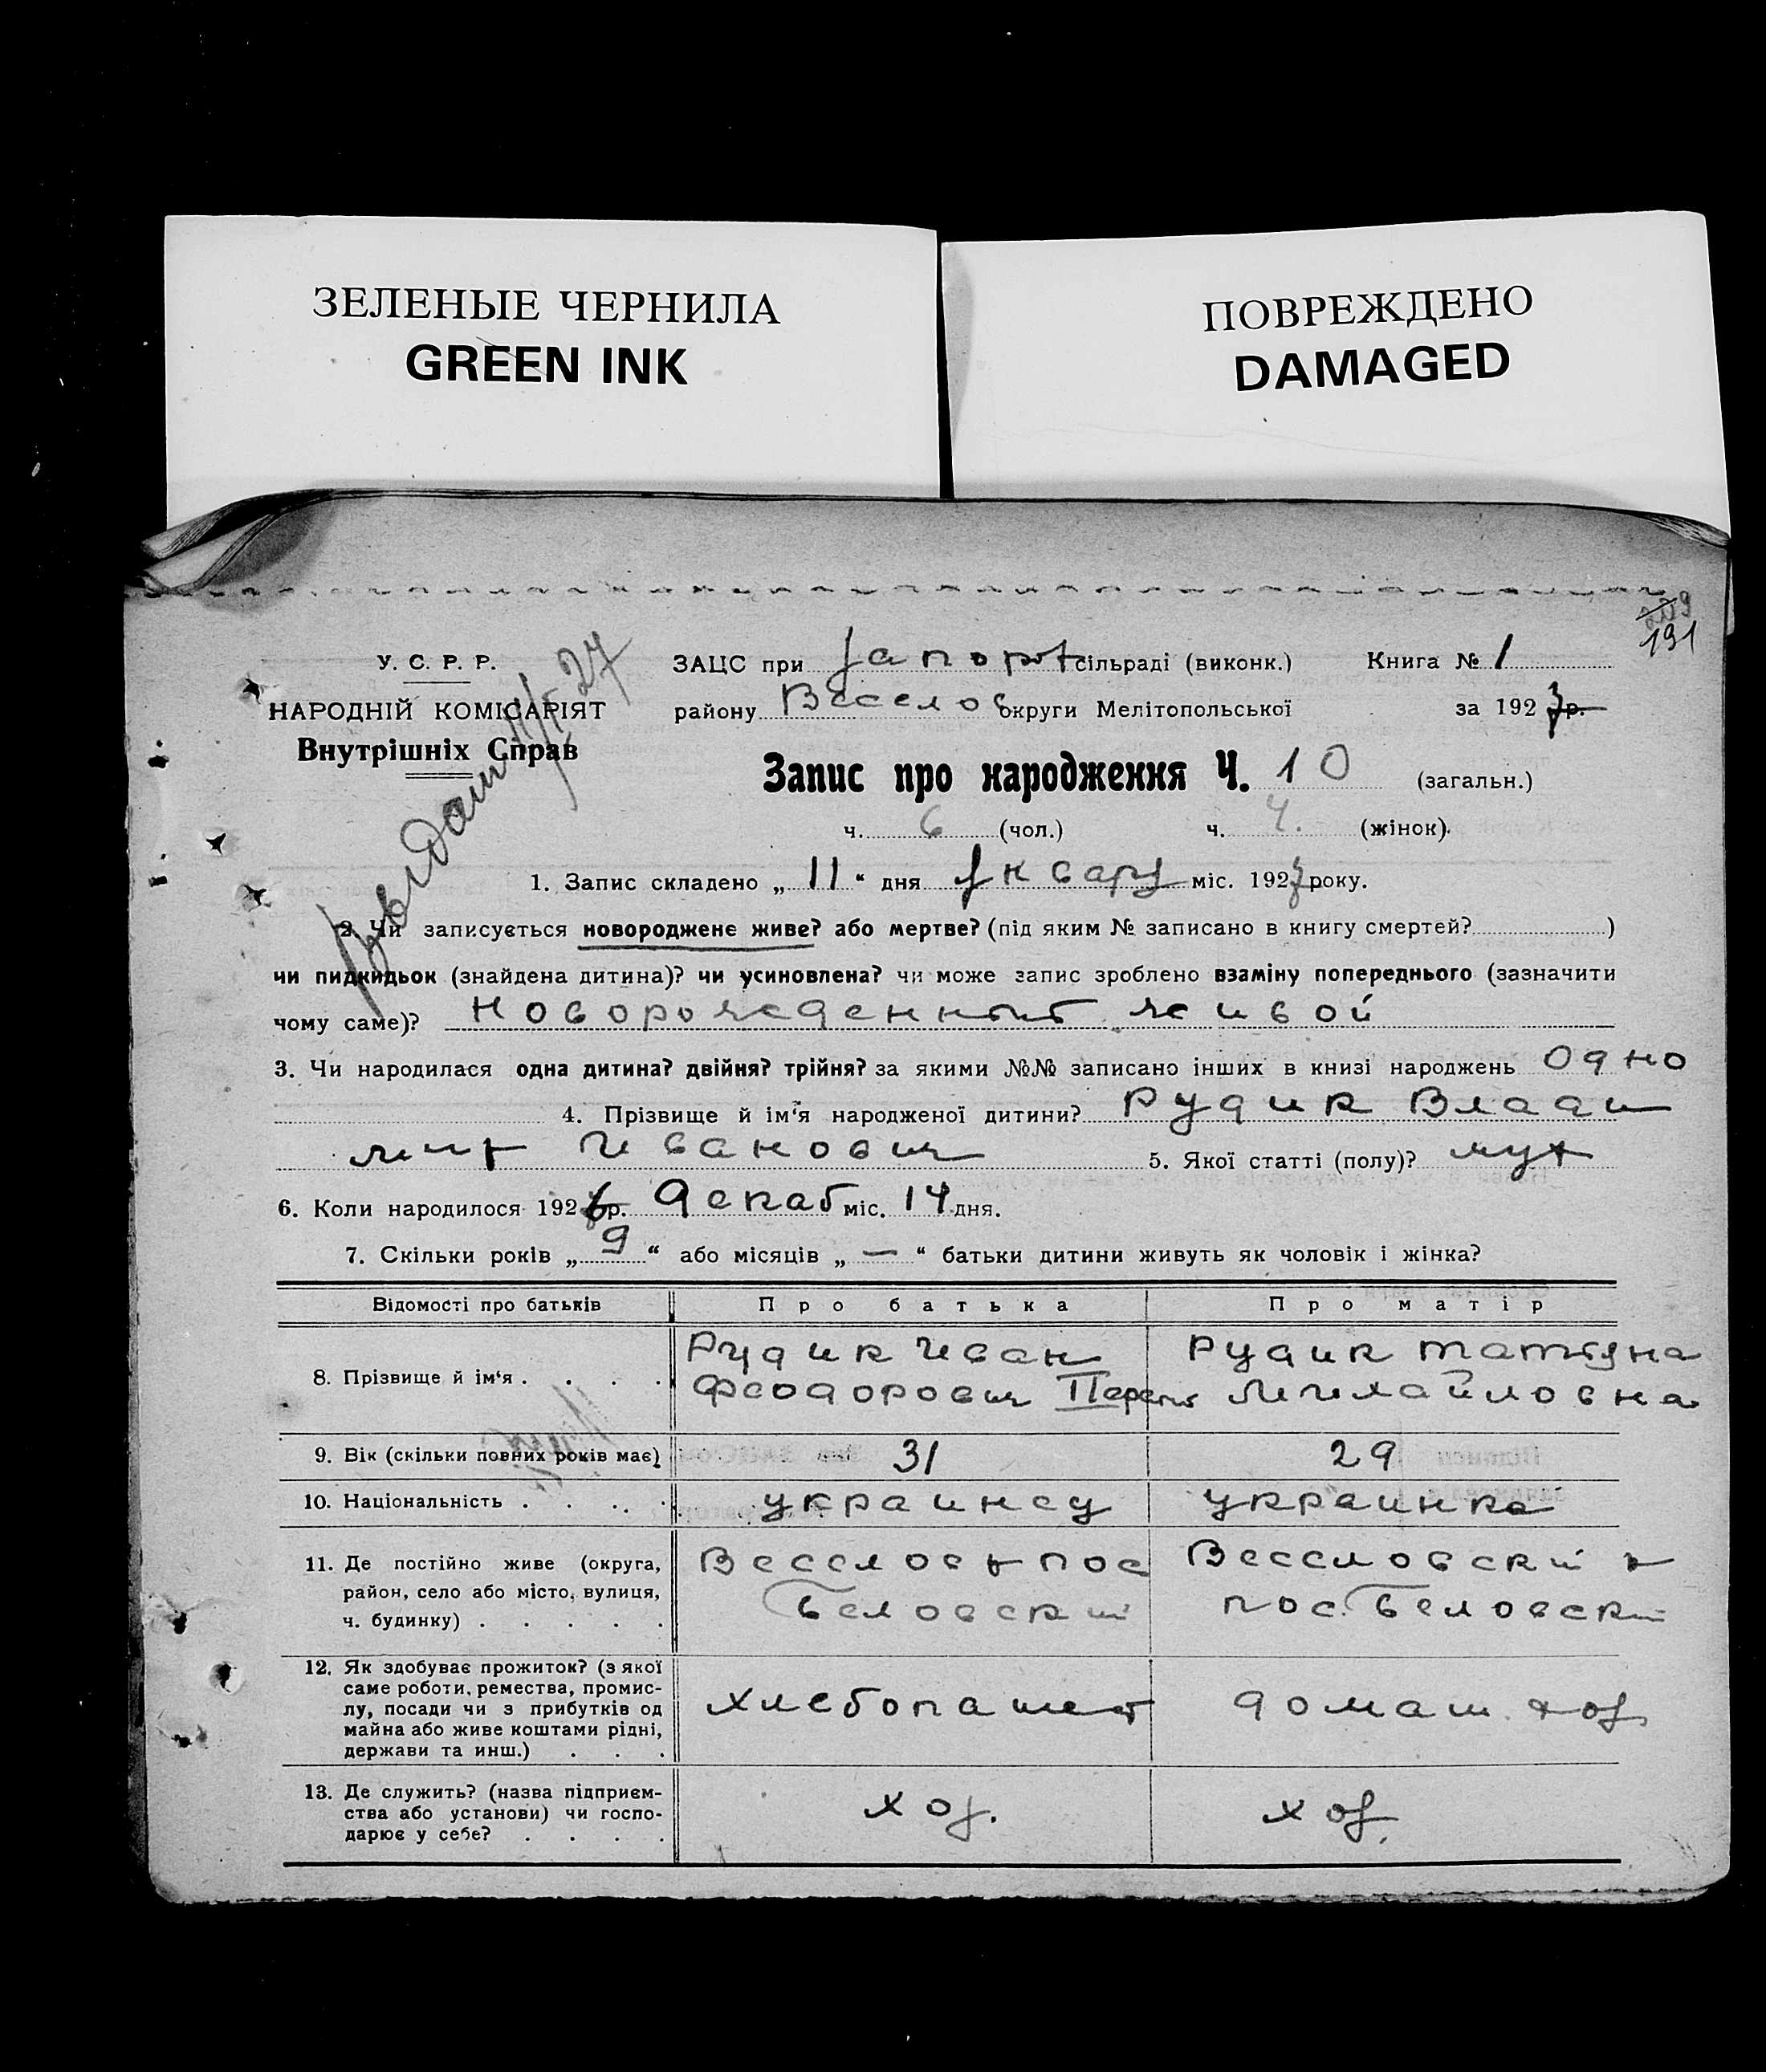 ЗЕЛЕНЫЕ ЧЕРНИЛА
GREEN INK
ПОВРЕЖДЕНО
DAMAGED
191
У. С. Р. Р.
НАРОДНІЙ КОМІСАРІЯТ
Внутрішніх Справ
ЗАЦС при Запорж сільраді (виконк.) Книга № 1
району Веселов округи Мелітопольської за 1927 р.
Запис про народження Ч. 10 (загальн.)
ч. 6 (чол.) ч. 4. (жінок).
1. Запис складено „ 11 “ дня Января міс. 1927 року.
2. Чи записується новороджене живе? або мертве? (під яким № записано в книгу смертей? )
чи пидкидьок (знайдена дитина)? чи усиновлена? чи може запис зроблено взаміну попереднього (зазначити
чому саме)? Новорожденный живой
3. Чи народилася одна дитина? двійня? трійня? за якими №№ записано інших в книзі народжень Одно
4. Прізвище й ім‘я народженої дитини? Рудик Влади
мир Иванович 5. Якої статті (полу)? муж
6. Коли народилося 1926 р. Декаб міс. 14 дня.
7. Скільки років „ 9 “ або місяців „ — “ батьки дитини живуть як чоловік і жінка?
Відомості про батьків Про батька Про матір
8. Прізвище й ім‘я . . . . Рудик Иван Рудик Татьяна
Феодорович Михайловна
9. Вік (скільки повних років має) 31 29
10. Національність . . . . украинец украинка
11. Де постійно живе (округа, Веселов р пос Веселовский р
район, село або місто, вулиця, Беловский пос. Беловский
ч. будинку) . . . . .
12. Як здобуває прожиток? (з якої
саме роботи, ремества, промис-
лу, посади чи з прибутків од хлебопашест домаш. хоз.
майна або живе коштами рідні,
держави та инш.) . . .
13. Де служить? (назва підприєм-
ства або установи) чи госпо- хоз. хоз.
дарює у себе? . . . .